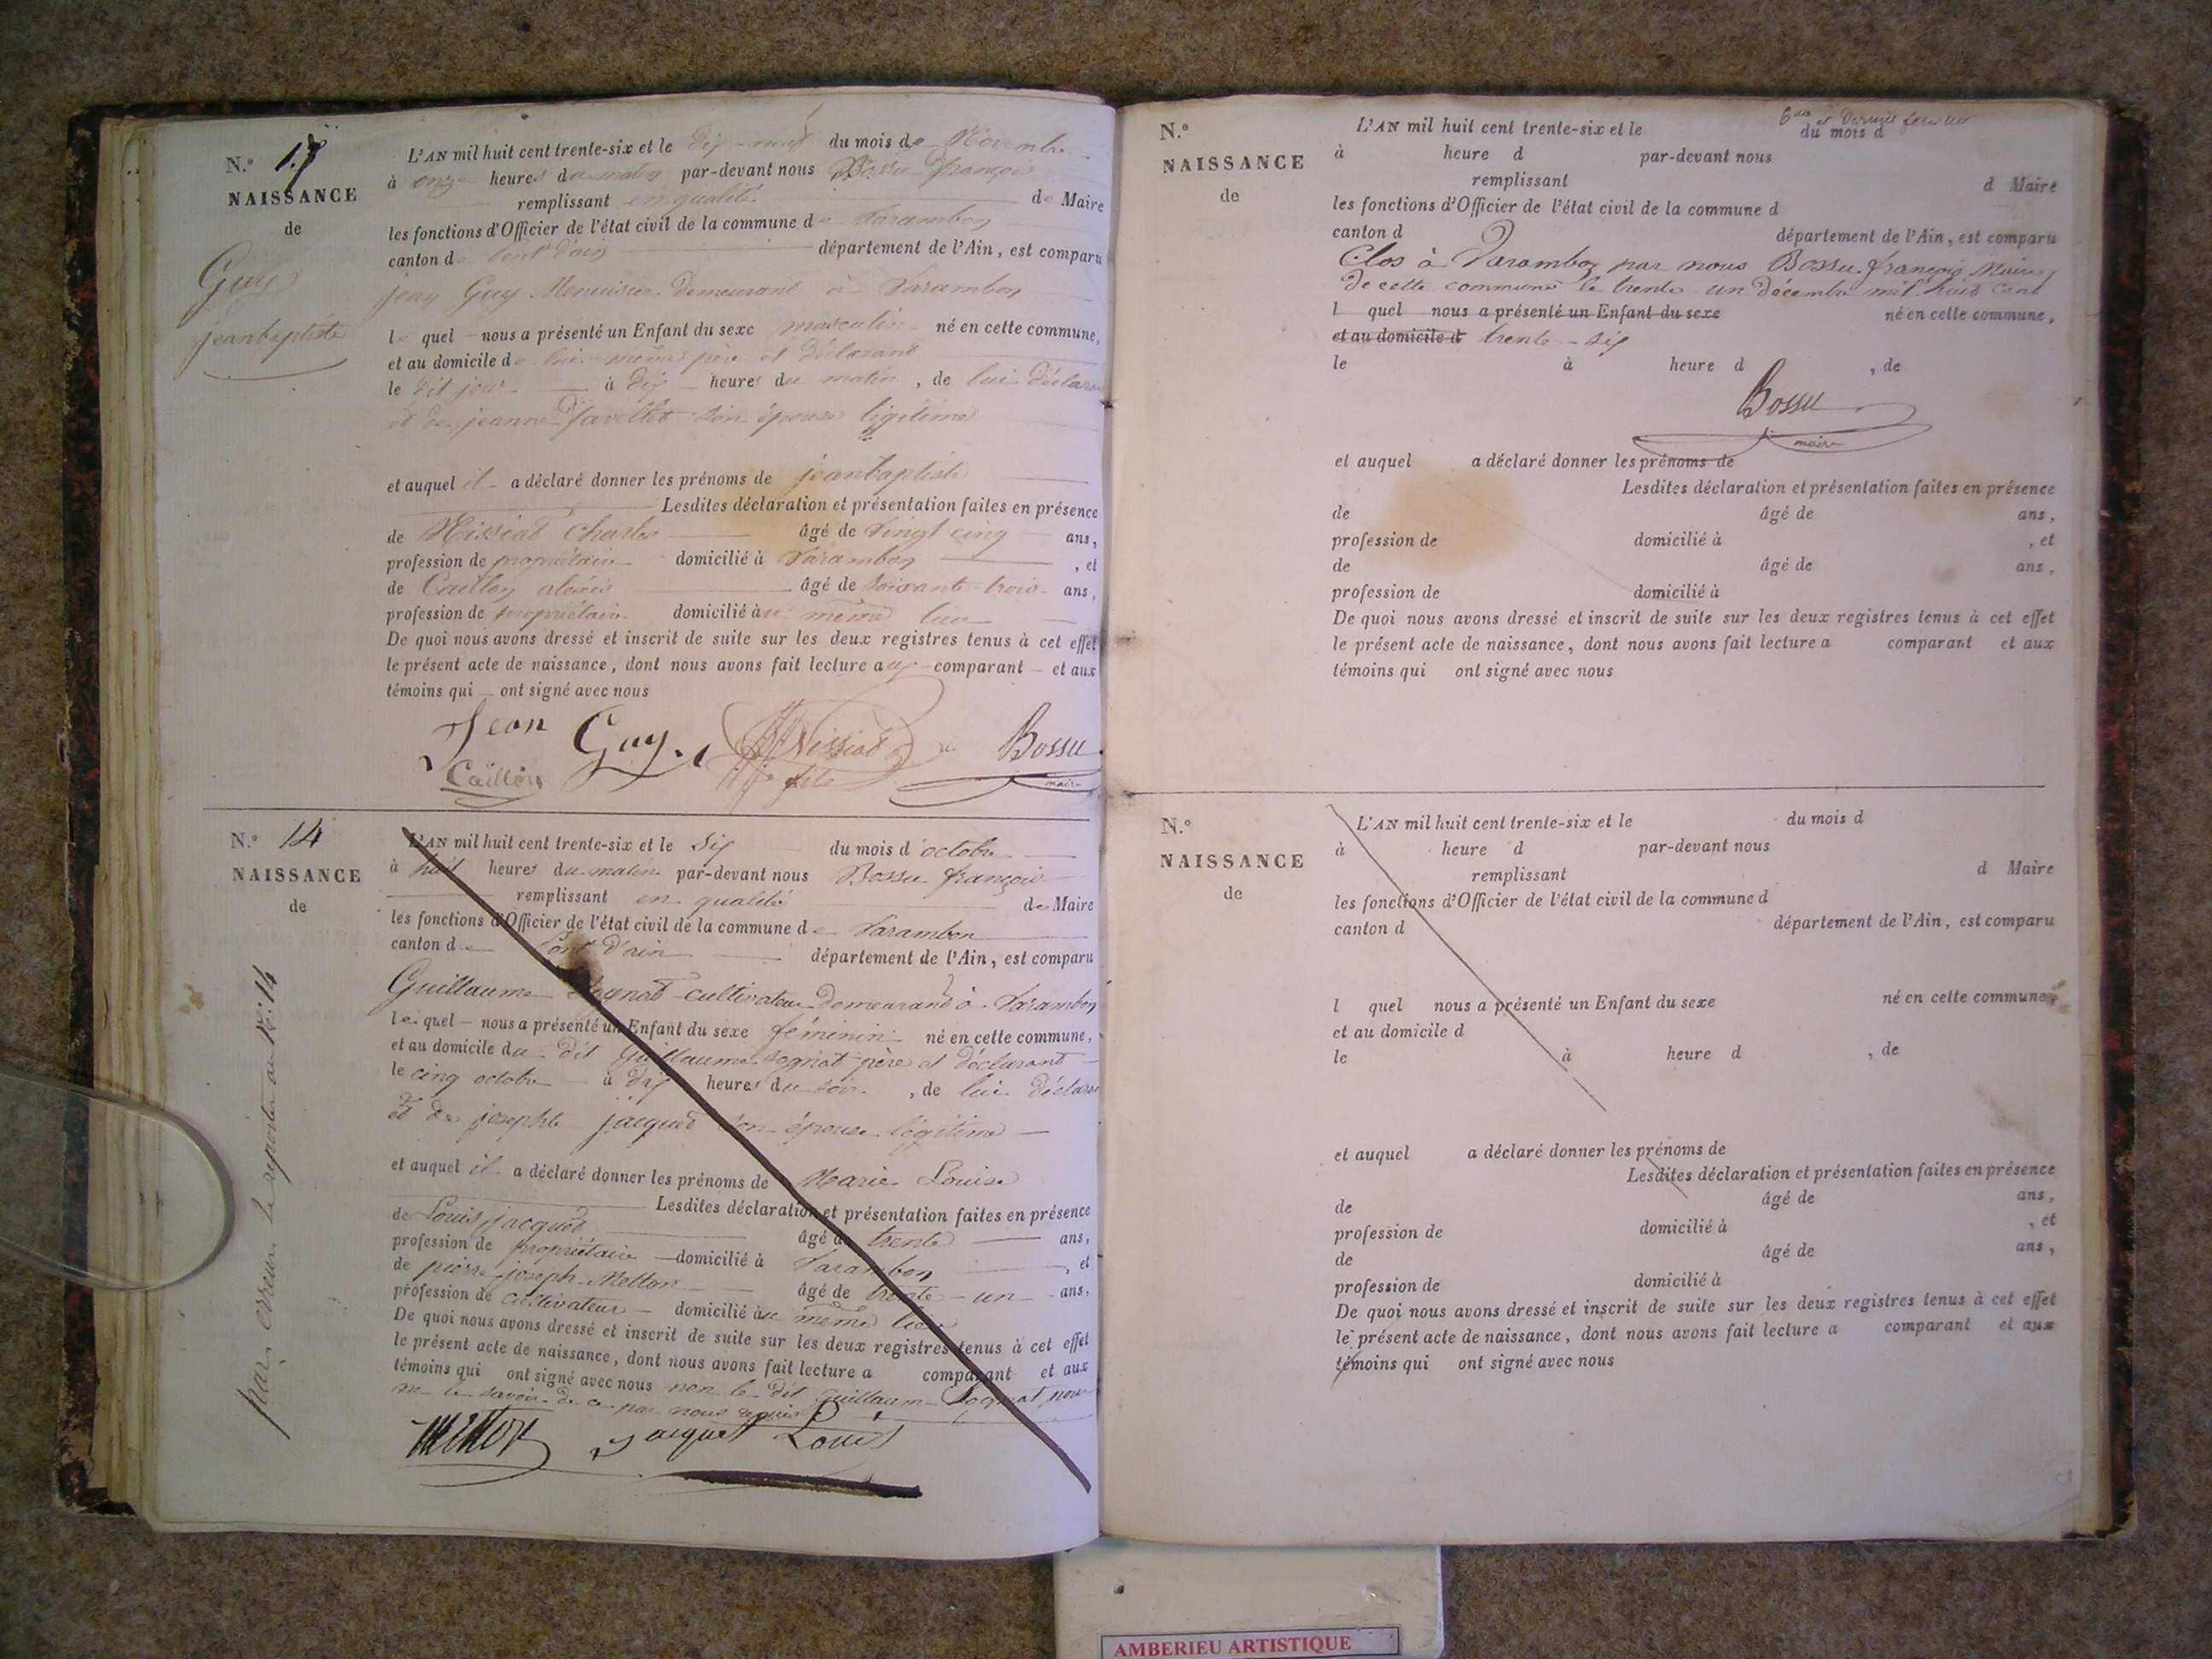 N.° 17
NAISSANCE
de
Guy
jeanbaptiste
L'AN mil huit cent trente-six et le dix-neuf du mois de Novembre
à onze heures du matin par-devant nous Bossu françois
remplissant en qualité de Maire
les fonctions d'Officier de l'état civil de la commune de Varambon
canton de Pont d'ain département de l'Ain, est comparu
jean Guy Menuisier Demeurant à Varambon
le quel nous a présenté un Enfant du sexe masculin né en cette commune,
et au domicile de lui-même père et Déclarant
le dit jour à dix heures du matin, de lui Déclarant
et de jeanne son épouse légitime
et auquel il a déclaré donner les prénoms de jeanbaptiste
Lesdites déclaration et présentation faites en présence
de Nissiat Charles âgé de vingt cinq ans,
profession de propriétaire domicilié à Varambon, et
de Caillon alexis âgé de soixante-trois ans,
profession de propriétaire domicilié au même lieu
De quoi nous avons dressé et inscrit de suite sur les deux registres tenus à cet effet
le présent acte de naissance, dont nous avons fait lecture aux comparant et aux
témoins qui ont signé avec nous
Jean Guy. Nissiat Bossu
Caillon fils maire
N.° 14
NAISSANCE
de
par erreur le reporter au N.° 14
L'AN mil huit cent trente-six et le six du mois d octobre
à huit heures du matin par-devant nous Bossu françois
remplissant en qualité de Maire
les fonctions d'Officier de l'état civil de la commune de Varambon
canton de Pont d'ain département de l'Ain, est comparu
Guillaume Sognat cultivateur Demeurant à Varambon
le quel nous a présenté un Enfant du sexe féminin né en cette commune,
et au domicile du Dit Guillaume Sognat père et déclarant
le cinq octobre à dix heures du soir, de lui Déclarant
et de josephte jacquet son épouse légitime
et auquel il a déclaré donner les prénoms de Marie Louise
Lesdites déclaration et présentation faites en présence
de Louis jacquet âgé de trente ans,
profession de propriétaire domicilié à Varambon, et
de pierre joseph Metton âgé de trente-un ans,
profession de cultivateur domicilié au même lieu
De quoi nous avons dressé et inscrit de suite sur les deux registres tenus à cet effet
le présent acte de naissance, dont nous avons fait lecture a comparant et aux
témoins qui ont signé avec nous non le Dit guillaume Sognat pour
ne le savoir de ce par nous requis
Metton Jacquet Louis
6me et Dernier feuillet
N.°
NAISSANCE
de
L'AN mil huit cent trente-six et le du mois d
à heure d par-devant nous
remplissant d Maire
les fonctions d'Officier de l'état civil de la commune d
canton d département de l'Ain, est comparu
Clos à Varambon par nous Bossu françois Maire
de cette commune le trente un décembre mil huit cent
l quel nous a présenté un Enfant du sexe né en cette commune,
et au domicile d trente-six
le à heure d , de
Bossu
maire
et auquel a déclaré donner les prénoms de
Lesdites déclaration et présentation faites en présence
de âgé de ans,
profession de domicilié à , et
de âgé de ans,
profession de domicilié à
De quoi nous avons dressé et inscrit de suite sur les deux registres tenus à cet effet
le présent acte de naissance, dont nous avons fait lecture a comparant et aux
témoins qui ont signé avec nous
N.°
NAISSANCE
de
L'AN mil huit cent trente-six et le du mois d
à heure d par-devant nous
remplissant d Maire
les fonctions d'Officier de l'état civil de la commune d
canton d département de l'Ain, est comparu
l quel nous a présenté un Enfant du sexe né en cette commune,
et au domicile d
le à heure d , de
et auquel a déclaré donner les prénoms de
Lesdites déclaration et présentation faites en présence
de âgé de ans,
profession de domicilié à , et
de âgé de ans,
profession de domicilié à
De quoi nous avons dressé et inscrit de suite sur les deux registres tenus à cet effet
le présent acte de naissance, dont nous avons fait lecture a comparant et aux
témoins qui ont signé avec nous
AMBERIEU ARTISTIQUE